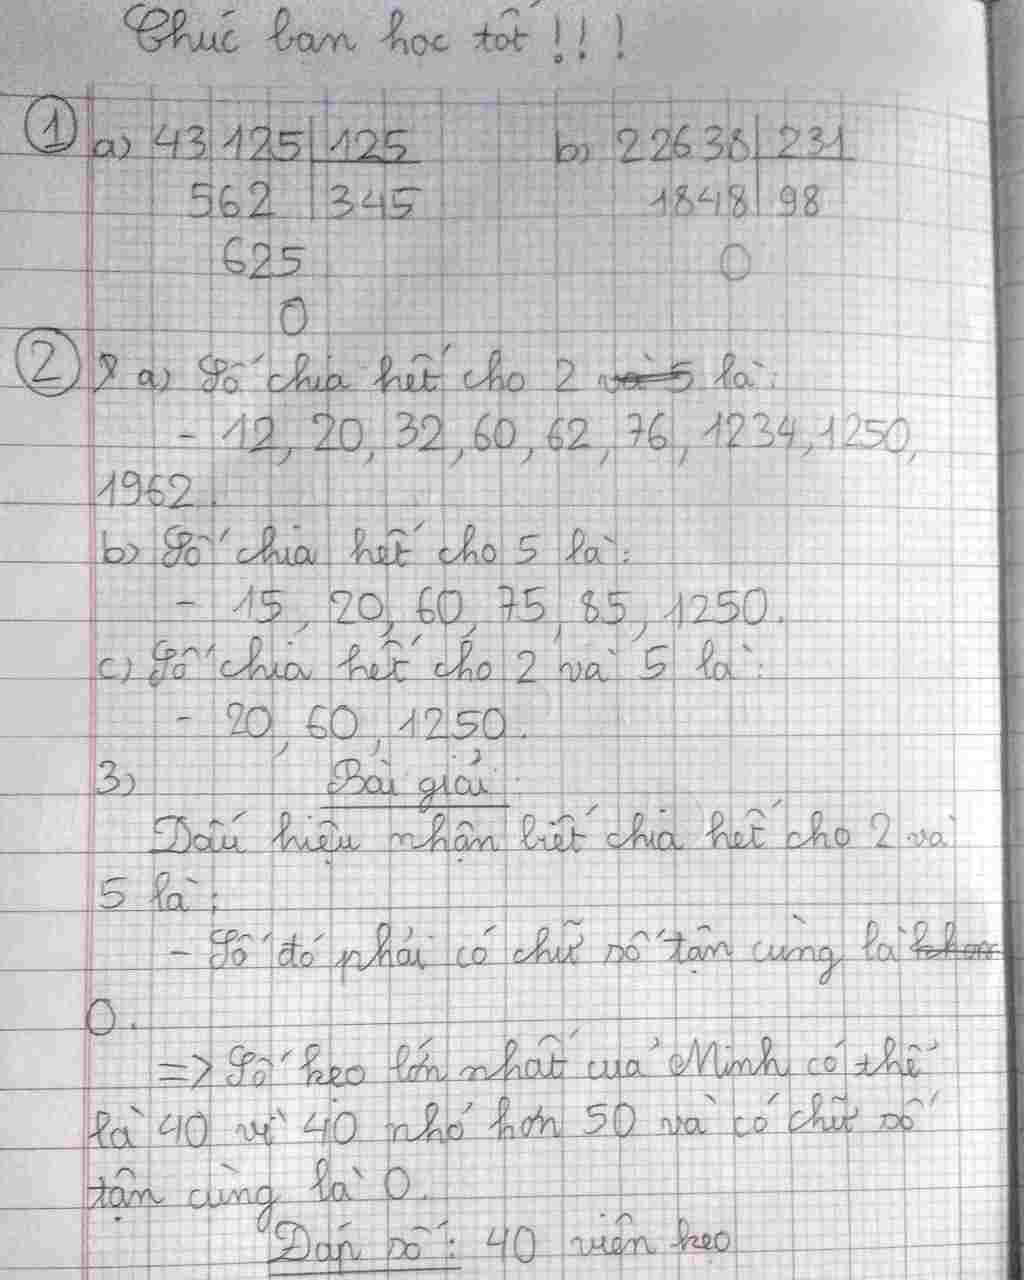 Chúc bạn học tốt!!!
① a) 43125 | 125 b) 22638 | 231
562 | 345 1848 | 98
625 0
0
② a) Số chia hết cho 2 là:
- 12, 20, 32, 60, 62, 76, 1234, 1250,
1962.
b) Số chia hết cho 5 là:
- 15, 20, 60, 75, 85, 1250.
c) Số chia hết cho 2 và 5 là:
- 20, 60, 1250.
3) Bài giải
Dấu hiệu nhận biết chia hết cho 2 và
5 là:
- Số đó phải có chữ số tận cùng là
0.
=> Số kẹo lớn nhất của Minh có thể
là 40 vì 40 nhỏ hơn 50 và có chữ số
tận cùng là 0.
Đáp số: 40 viên kẹo